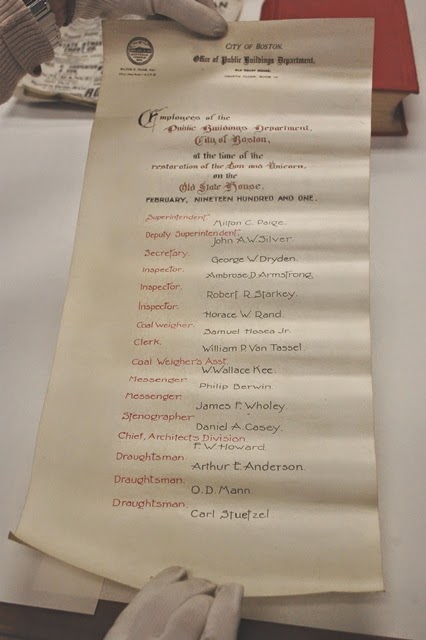 CITY OF BOSTON.
Office of Public Buildings Department,
OLD COURT HOUSE,
Employees of the
Public Buildings Department,
City of Boston,
at the time of the
restoration of the Lion and Unicorn,
on the
Old State House,
FEBRUARY, NINETEEN HUNDRED AND ONE.
Superintendent,
Milton C. Paige.
Deputy Superintendent,
John A.W. Silver.
Secretary.
George W. Dryden.
Inspector.
Ambrose D. Armstrong.
Inspector.
Robert R. Starkey.
Inspector.
Horace W. Rand.
Coal weigher.
Samuel Hosea Jr.
Clerk.
William P. Van Tassel.
Coal Weigher's Asst.
W. Wallace Kee.
Messenger.
Philip Berwin.
Messenger.
James F. Wholey.
Stenographer
Daniel A. Casey.
Chief, Architect's Division
F. W. Howard.
Draughtsman.
Arthur E. Anderson.
Draughtsman.
O. D. Mann.
Draughtsman.
Carl Stuetzel.